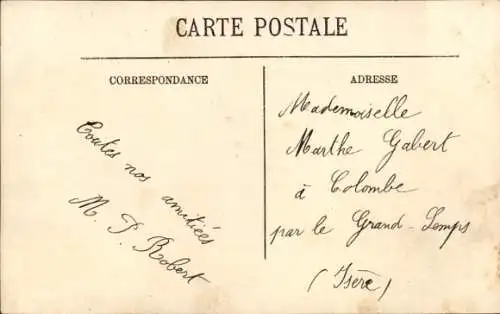 CARTE POSTALE
CORRESPONDANCE
Toutes nos amitiées
M. P. Robert
ADRESSE
Mademoiselle
Marthe Gabert
à Colombe
par le Grand-Lemps
(Isère)